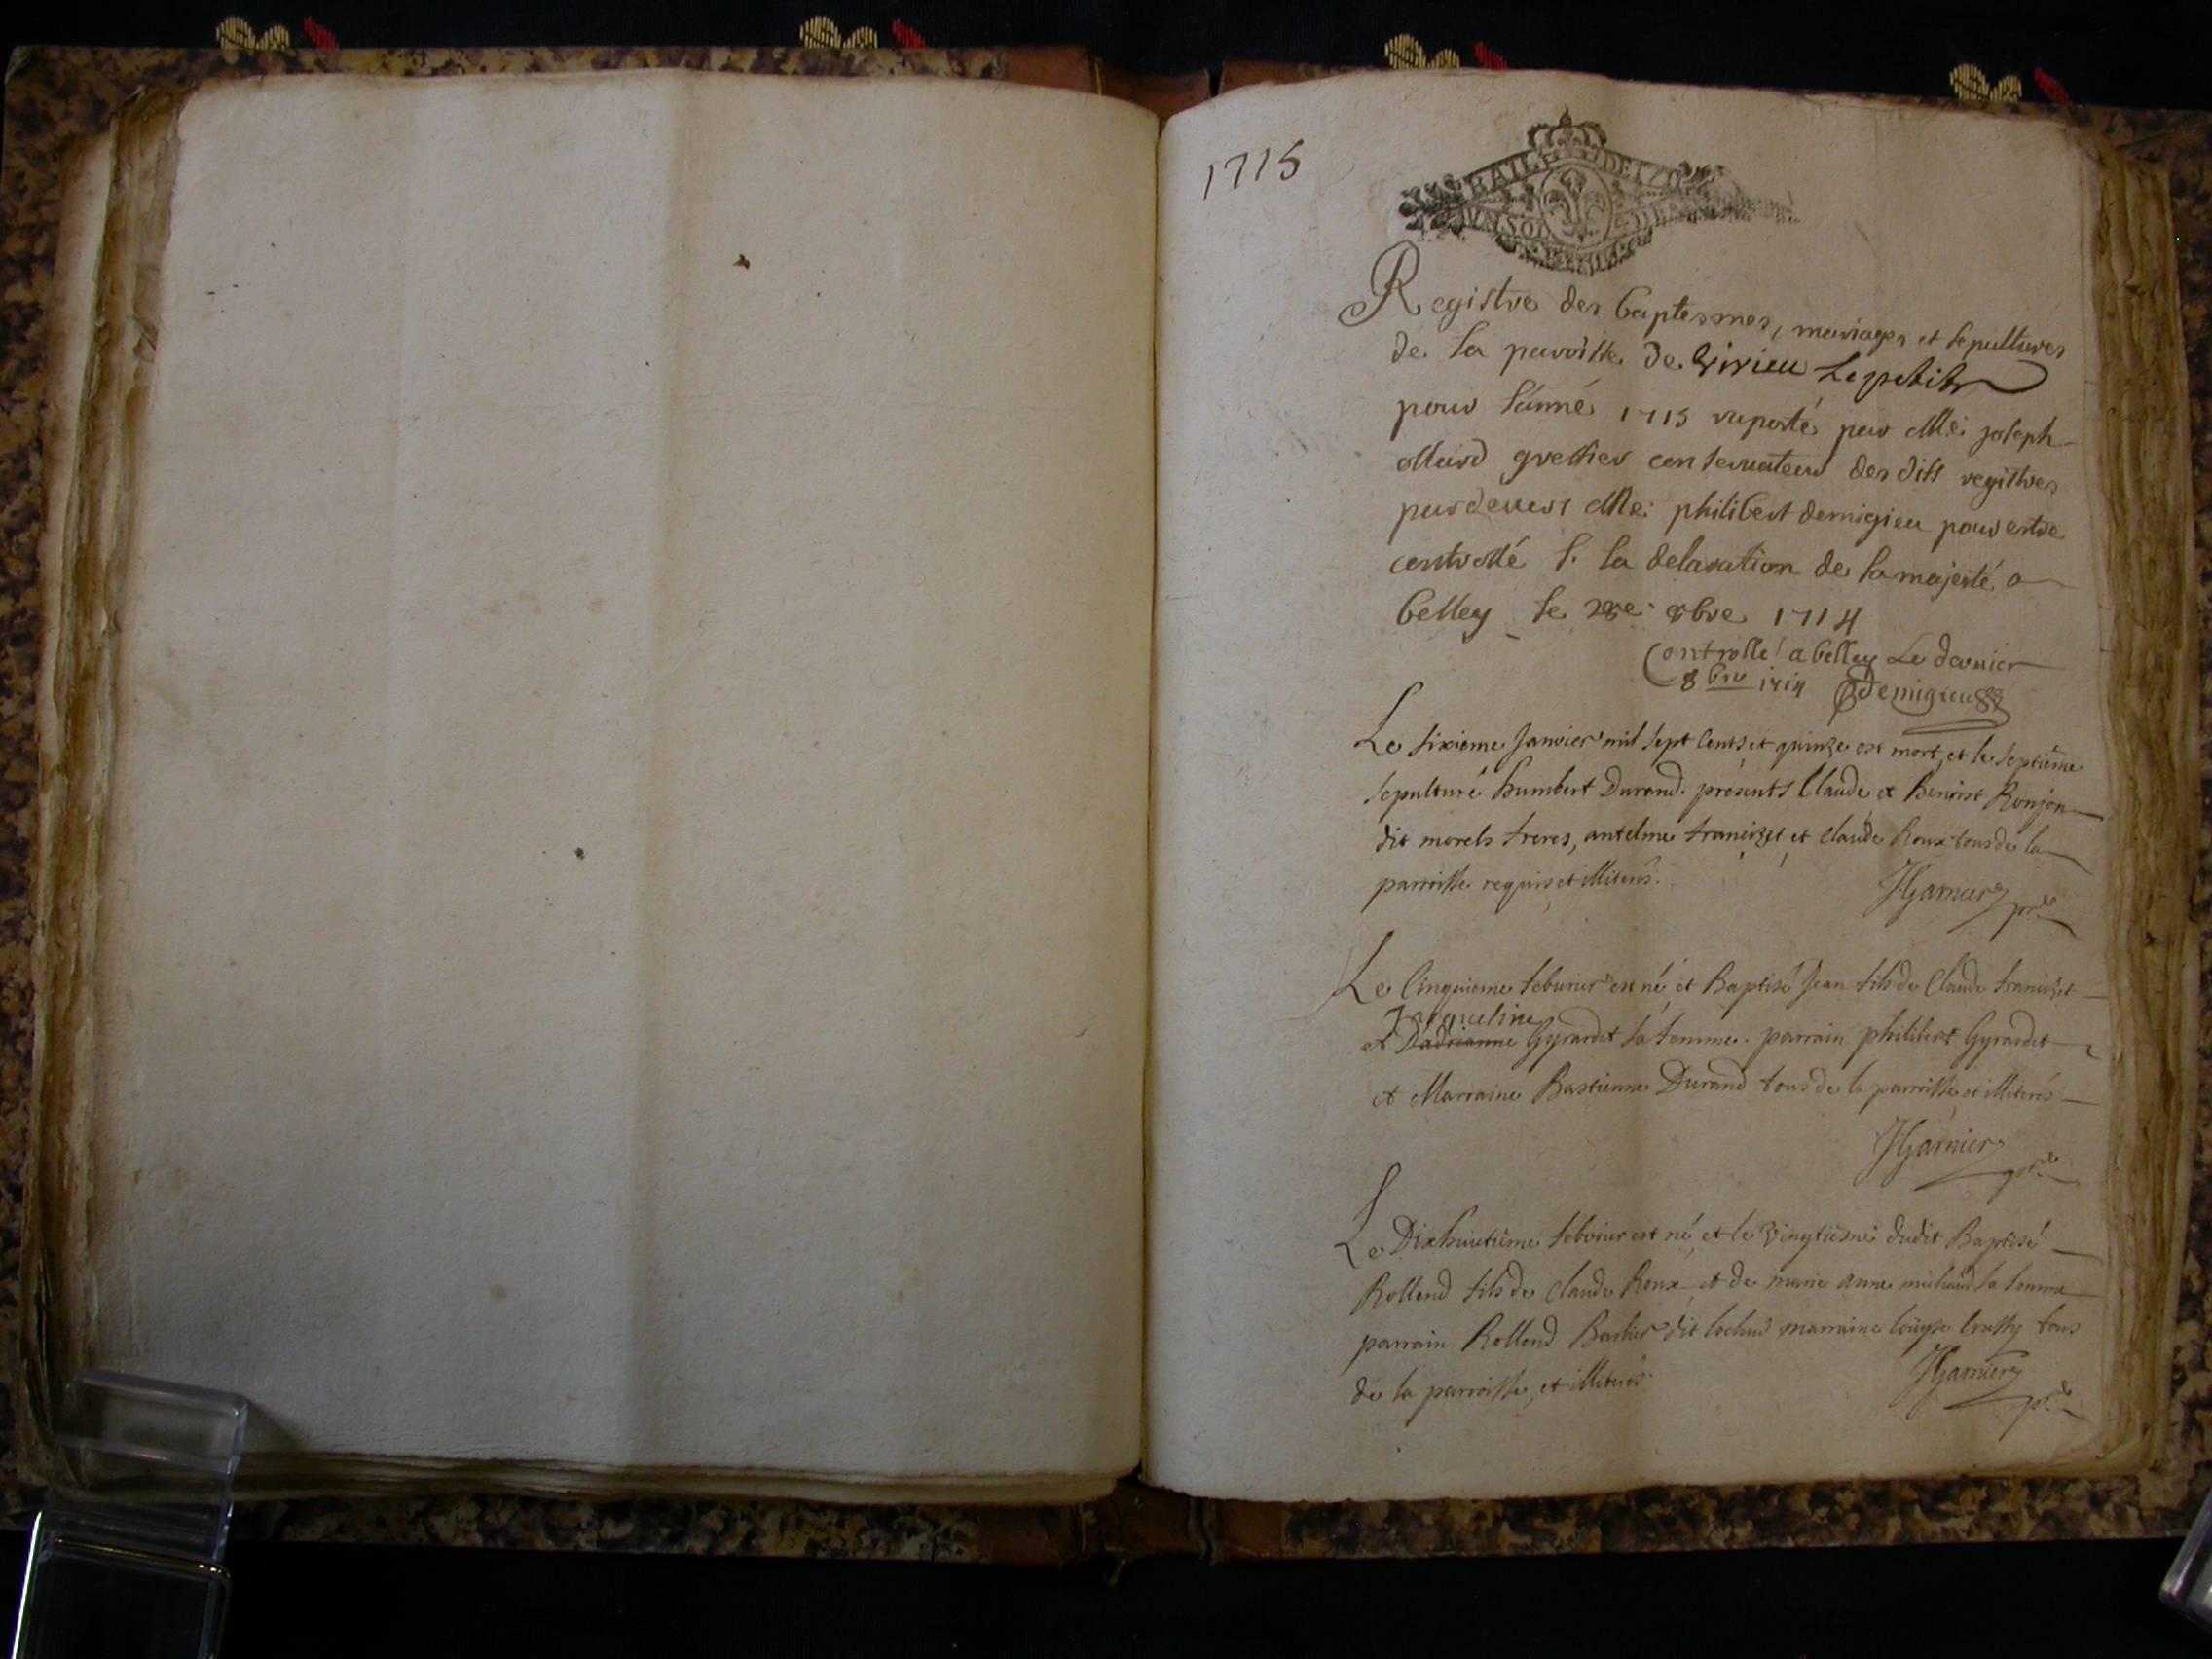 1715
BAIL DE
UN SOL
Registre des baptesmes, mariages et sepultures
de la paroisse de Virieu Le petit
pour l'anné 1715 raporté par Me joseph
greffier conseruateur des dits registres
pardeuers Me: philibert demigieu pour estre
controllé s. la delaration de sa majesté a
belley le 28e 8bre 1714
Controllé a belley Le dernier
8bre 1714 Demigieu
Le sixieme Janvier mil sept Cents et quinze est mort, et le septieme
sepulturé humbert Durand. presents Claude et Benoist Ronjon
dit morels freres, antelme franiszet et Claude Roux tous de la
parroisse requis et illiterés.
JGarnier ptre
Le Cinquieme feburier est né, et Baptisé Jean fils de Claude franiszet
Jacqueline
et Dadrianne Gyrardet sa femme. parrain philibert Gyrardet
et Marraine Bastienne Durand tous de la parroisse et illiterés
JGarnier ptre
Le Dixhuitieme feburier est né, et le Vingtiesme dudit Baptisé
Rollend fils de Claude Roux, et de marie anne michaud sa femme
parrain Rollend Barlier dit marraine louyse tous
de la parroisse, et illiterés
JGarnier ptre